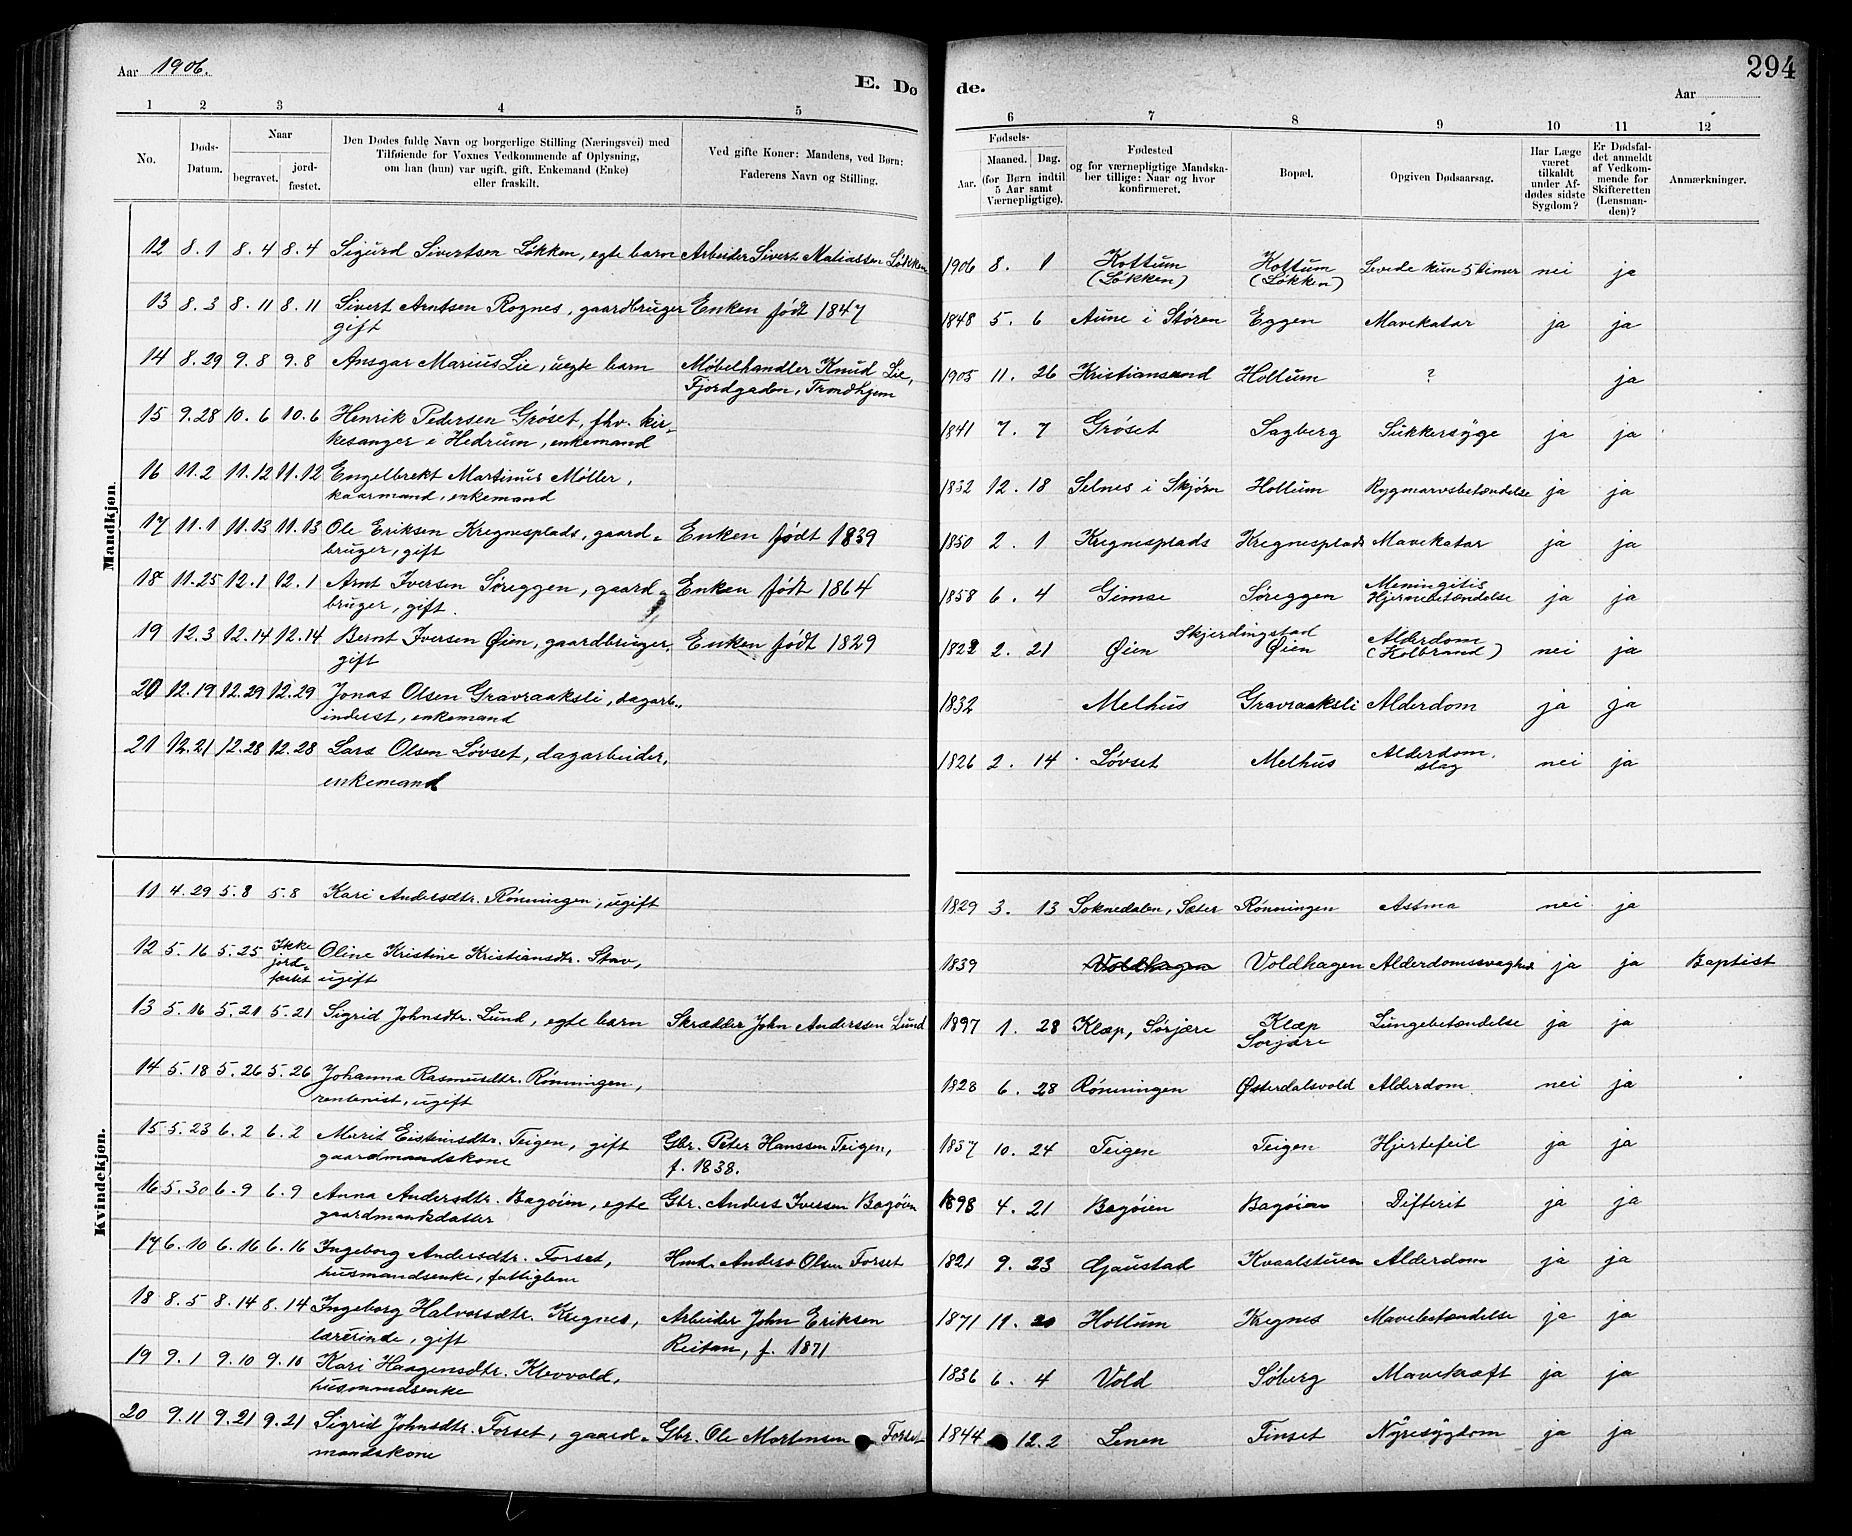 Aar 1906.
E. Do
de.
294
Aar
1 2 3 4 5
6 7 8 9 10 11 12
No.
Døds-
Datum.
Naar
begravet.
jord-
fæstet.
Den Dødes fulde Navn og borgerlige Stilling (Næringsvei) med
Tilføiende for Voxnes Vedkommende af Oplysning,
om han (hun) var ugift, gift, Enkemand (Enke)
eller fraskilt.
Ved gifte Koner: Mandens, ved Børn:
Faderens Navn og Stilling.
Fødsels-
Aar.
Maaned. Dag.
(for Børn indtil
5 Aar samt
Værnepligtige).
Fødested
og for værnepligtige Mandska-
ber tillige: Naar og hvor
konfirmeret.
Bopæl.
Opgiven Dødsaarsag.
Har Læge
været
tilkaldt
under Af-
dødes sidste
Sygdom?
Er Dødsfal-
det anmeldt
af Vedkom-
mende for
Skifteretten
(Lensman-
den)?
Anmærkninger.
Mandkjøn.
12 8.1 8.4 8.4 Sigurd Sivertsen Løkken, egte barn Arbeider Sivert Matiassen Løkken 1906 8. 1 Kottum Kottum Levede kun 5 timer nei ja
(Løkken) (Løkken)
13 8.3 8.11 8.11 Sivert Arntsen Rognes, gaardbruger Enken født 1847 1848 5. 6 Aune i Støren Eggen Mavekatar ja ja
gift
14 8.29 9.8 9.8 Ansgar Marius Lie, uegte barn Møbelhandler Knud Lie, 1905 11. 26 Kristiansund Hollum ? ja
Fjordgaden, Trondhjem
15 9.28 10.6 10.6 Henrik Pedersen Grøset, fhv. kir- 1841 7. 7 Grøset Sagberg Sukkersyge ja ja
kesanger i Hedrum, enkemand
16 11.2 11.12 11.12 Engelbrekt Martinus Møller, 1832 12. 18 Selnes i Skjørn Hollum Rygmarvsbetændelse ja ja
kaarmand, enkemand
17 11.1 11.13 11.13 Ole Eriksen Kregnesplads, gaard- Enken født 1839 1850 2. 1 Kregnesplads Kregnesplads Mavekatar ja ja
bruger, gift
18 11.25 12.1 12.1 Arnt Iversen Søreggen, gaard- Enken født 1864 1858 6. 4 Gimse Søreggen Meningitis Hjernebetændelse ja ja
bruger, gift.
19 12.3 12.14 12.14 Bernt Iversen Øien, gaardbruger, Enken født 1829 1822 2. 21 Øien Skjerdingstad Øien Alderdom (Kolbrand) nei ja
gift
20 12.19 12.29 12.29 Jonas Olsen Gravraaksli, dagarb., 1832 Melhus Gravraaksli Alderdom ja ja
inderst, enkemand
21 12.21 12.28 12.28 Lars Olsen Løvset, dagarbeider, 1826 2. 14 Løvset Melhus Alderdom, slag nei ja
enkemand
Kvindekjøn.
11 4.29 5.8 5.8 Kari Andersdtr. Rønningen, ugift 1829 3. 13 Soknedalen, Sæter Rønningen Astma nei ja
12 5.16 5.25 Ikke jord-fæstet Oline Kristine Kristiansdtr. Stav, 1839 Voldhagen Voldhagen Alderdomssvaghed ja ja Baptist
ugift
13 5.16 5.21 5.21 Sigrid Johnsdtr. Lund, egte barn Skrædder John Anderssen Lund 1897 1. 28 Klæp, Sørjære Klæp Lungebetændelse ja ja
Sørjære
14 5.18 5.26 5.26 Johanna Rasmusdtr. Rønningen, 1828 6. 28 Rønningen Østerdalsvold Alderdom nei ja
rentenist, ugift
15 5.23 6.2 6.2 Marit Eisteinsdtr. Teigen, gift Gbr. Peter Hanssen Teigen, 1837 10. 24 Teigen Teigen Hjertefeil ja ja
gaardmandskone f. 1838.
16 5.30 6.9 6.9 Anna Andersdtr. Bagøien, egte Gbr. Anders Iversen Bagøien 1898 4. 21 Bagøien Bagøien Difterit ja ja
gaardmandsdatter
17 6.10 6.16 6.16 Ingeborg Andersdtr. Forset, Hmd. Anders Olsen Forset 1821 9. 23 Gaustad Kvaalstuen Alderdom ja ja
husmandsenke, fattiglem
18 8.5 8.14 8.14 Ingeborg Halvorsdtr. Kregnes, Arbeider John Eriksen 1871 11. 20 Hollum Kregnes Mavebetændelse ja ja
lærerinde, gift Reitan, f. 1871
19 9.1 9.10 9.10 Kari Haagensdtr. Klevvold, 1836 6. 4 Vold Søberg Mavekræft ja ja
husmandsenke
20 9.11 9.21 9.21 Sigrid Johnsdtr. Forset, gaard- Gbr. Ole Mortensen Forset 1844 12.2 Lenen Tinset Nyresygdom ja ja
mandskone